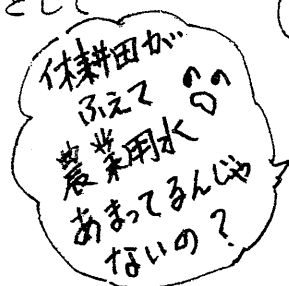 として
休耕田が
ふえて
農業用水
あまってるんじゃ
ないの？